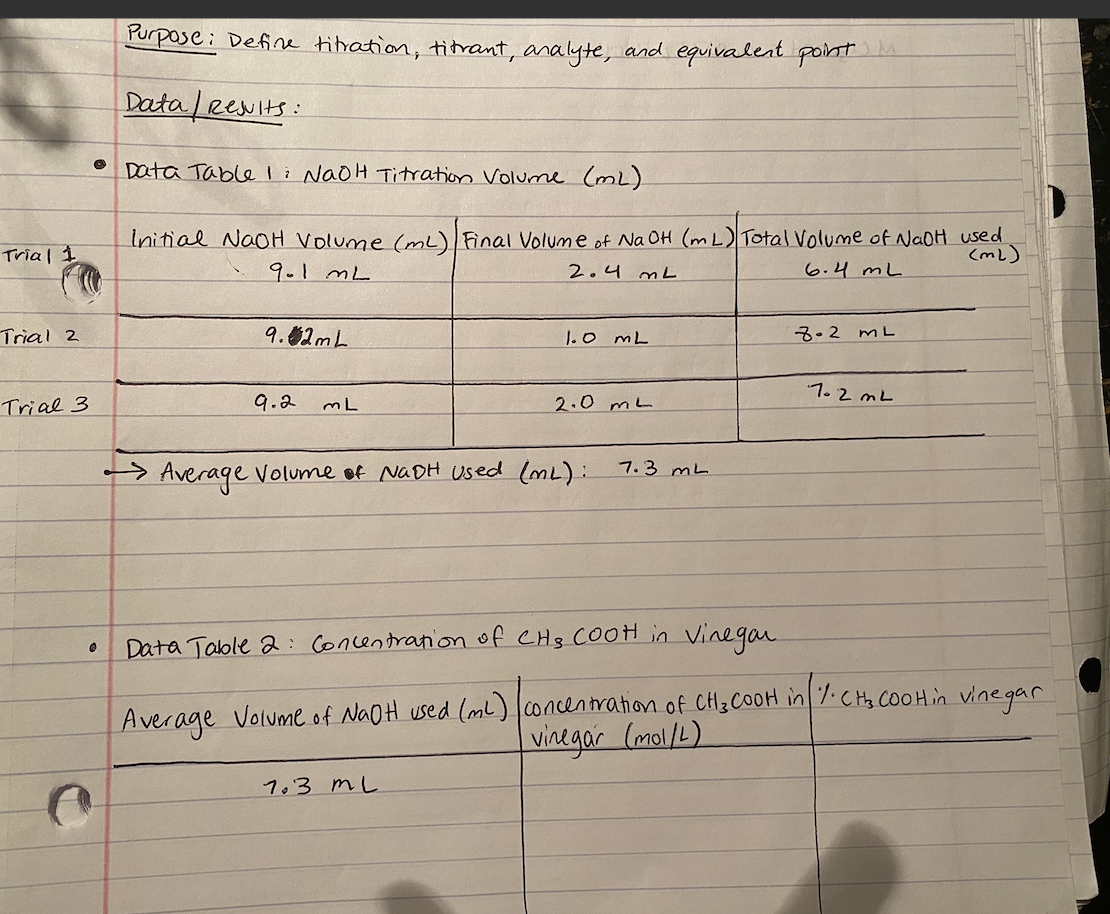 Purpose: Define titration, titrant, analyte, and equivalent point
Data/Results:
• Data Table 1: NaOH Titration Volume (mL)
Initial NaOH Volume (mL) Final Volume of NaOH (mL) Total Volume of NaOH used (mL)
Trial 1 9.1 mL 2.4 mL 6.4 mL
Trial 2 9.2mL 1.0 mL 8.2 mL
Trial 3 9.2 mL 2.0 mL 7.2 mL
→ Average Volume of NaOH used (mL): 7.3 mL
• Data Table 2: Concentration of CH3COOH in Vinegar
Average Volume of NaOH used (mL) concentration of CH3COOH in % CH3COOH in vinegar
vinegar (mol/L)
7.3 mL